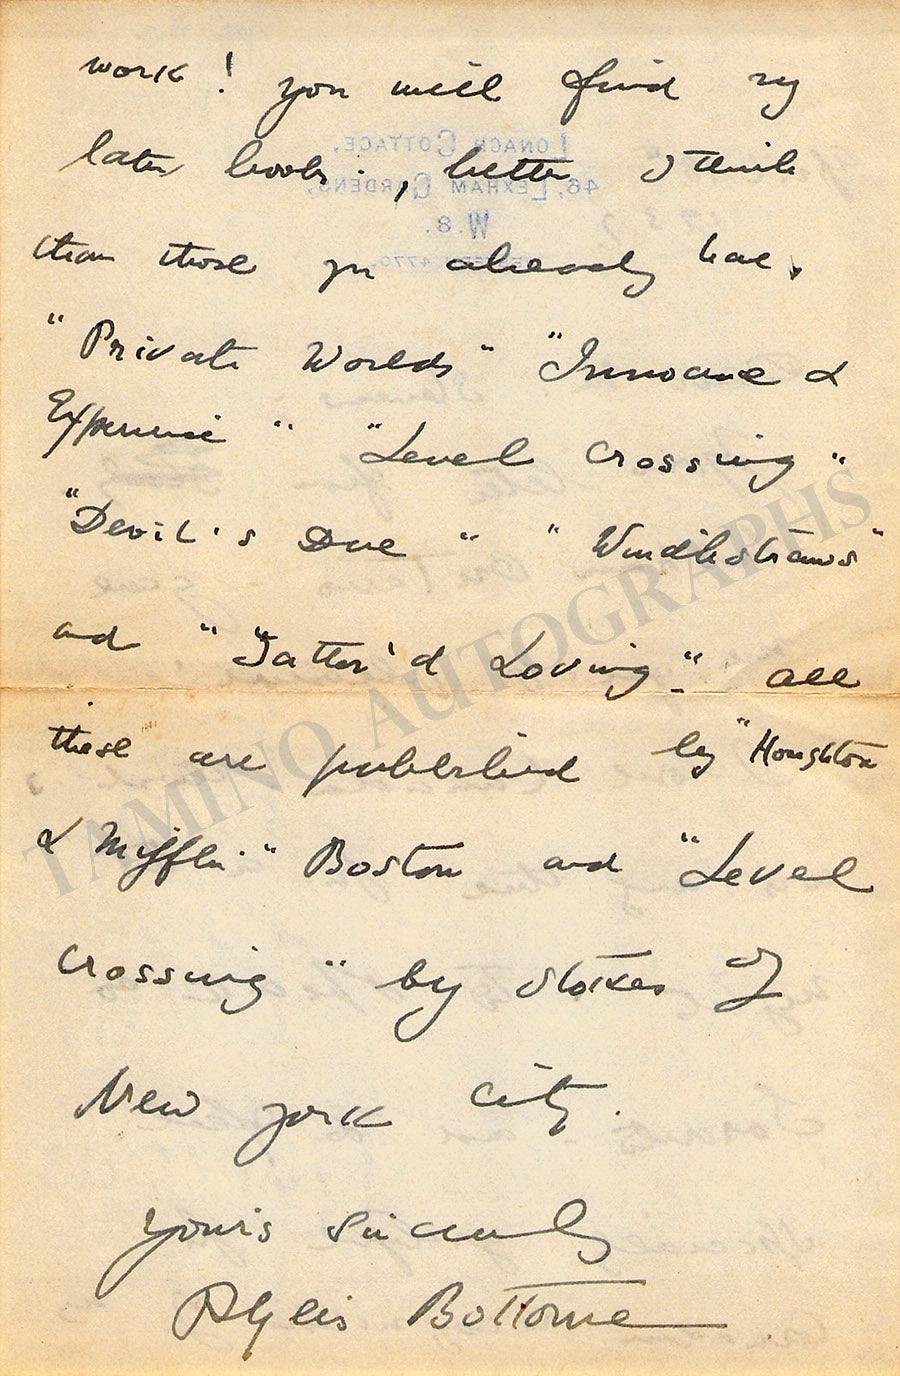 work! you will find my
later books, better I think
than those you already have.
"Private Worlds" "Innocence &
Experience" "Level Crossing"
"Devil's Due" "Windlestraws"
and "Tatter'd Loving" all
these are published by "Houghton
& Mifflin" Boston and "Level
Crossing" by Stokes of
New York City.
Yours Sincerely
Phyllis Bottome
LONACH COTTAGE,
46, LEXHAM GARDENS,
W.8.
4770.
TAMINO AUTOGRAPHS